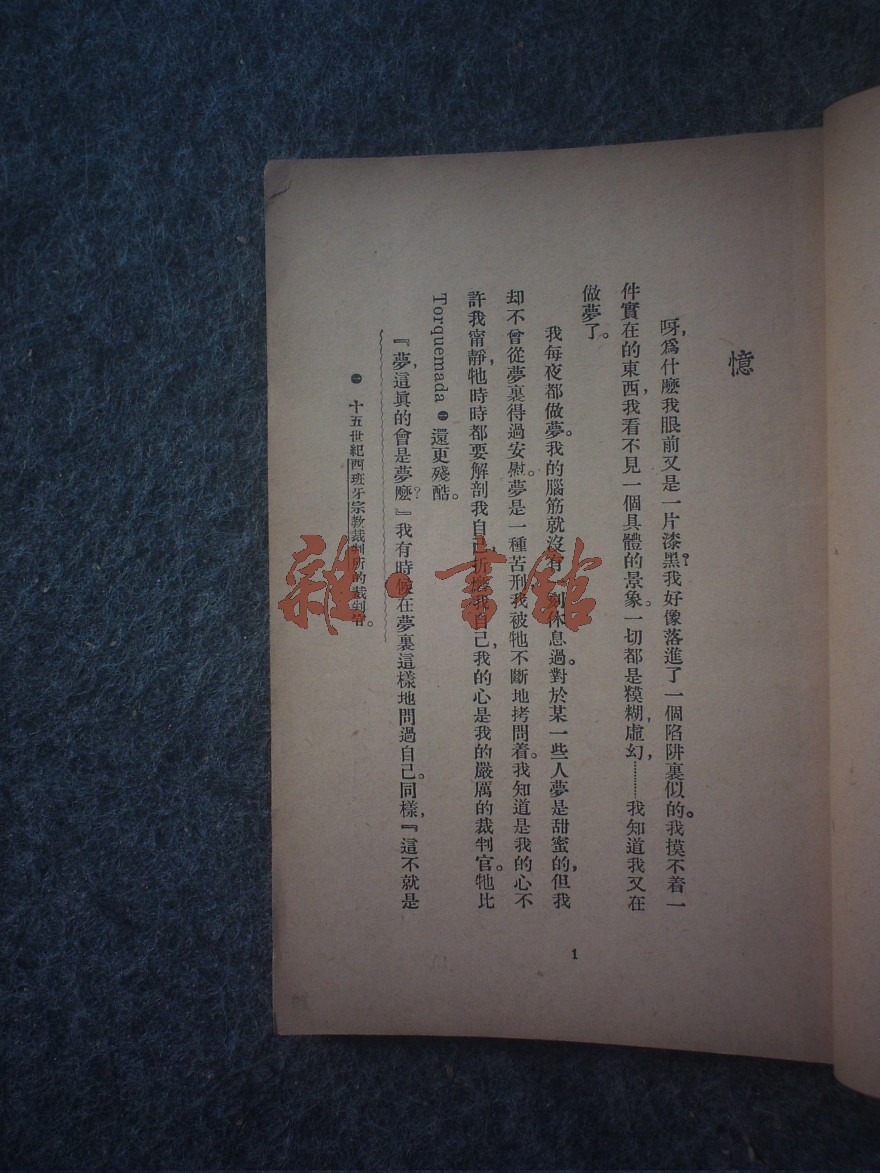 憶
呀,爲什麽我眼前又是一片漆黑?我好像落進了一個陷阱裏似的。我摸不着一
件實在的東西,我看不見一個具體的景象。一切都是糢糊,虛幻,………我知道我又在
做夢了。
我每夜都做夢。我的腦筋就沒有一刻休息過。對於某一些人夢是甜蜜的,但我
却不曾從夢裏得過安慰。夢是一種苦刑,我被牠不斷地拷問着。我知道是我的心不
許我甯靜,牠時時都要解剖我自己,折磨我自己,我的心是我的嚴厲的裁判官。牠比
Torquemada ㊀還更殘酷。
『夢,這眞的會是夢麽?』我有時候在夢裏這樣地問過自己。同樣,『這不就是
㊀ 十五世紀西班牙宗教裁判所的裁判官。
1
雜·書館